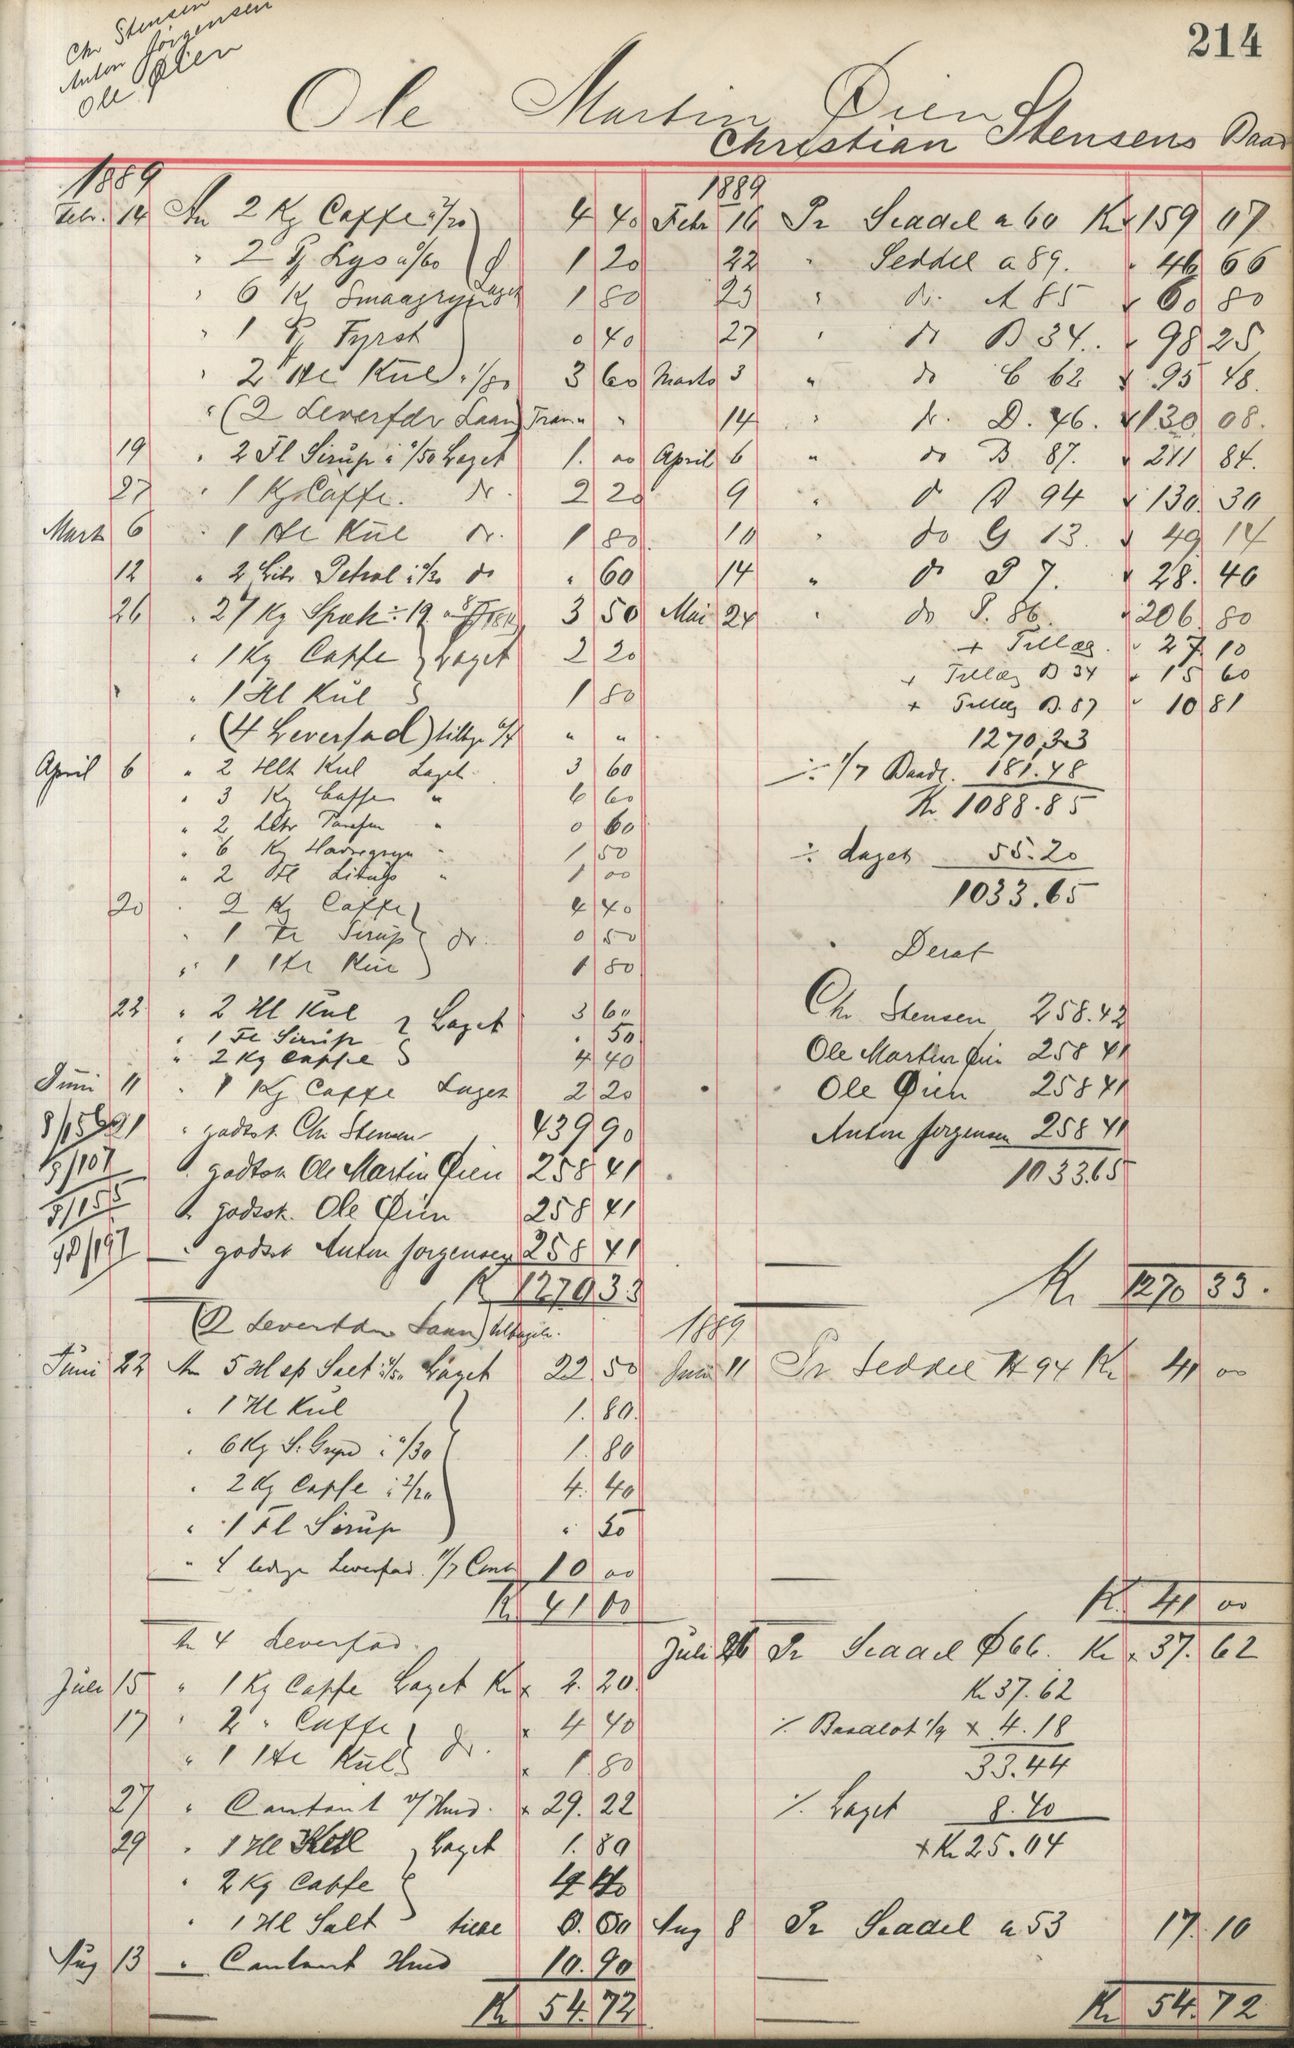 214
Chr Stensen
Anton Jörgensen
Ole Øien
Ole Martin Øien
Christian Stensens Baad
1889
Febr. 14 An 2 Kg Caffe a 2/20 4 40
" 2 Pk Lys a 0/60 1 20
" 6 Kg Smaagryn Laget 1 80
" 1 Pk Fyrst 0 40
" 2 Hl Kul a 1/80 3 60
" (2 Leverfdr Laan) Tran " "
19 " 2 Fl Sirup a 0/50 Laget 1. 00
27 " 1 Kg Caffe. do. 2 20
Mart 6 " 1 Hl Kul do. 1 80
12 " 2 Litr Petrol a 0/30 do " 60
26 " 27 Kg Spæk ÷ 19 3 50
" 1 Kg Caffe } Laget 2 20
" 1 Hl Kul 1 80
" (4 Leverfad) tilbge " "
April 6 " 2 Hlt Kul Laget 3 60
" 3 Kg Caffe " 6 60
" 2 Litr Parafin " 0 60
" 6 Kg Havregryn " 1 50
" 2 Fl " 1 00
20 " 2 Kg Caffe 4 40
" 1 Fl Sirup } do. 0 50
" 1 Hl Kul 1 80
22 " 2 Hl Kul } Laget 3 60
" 1 Fl Sirup . 50
" 2 Kg Caffe 4 40
Juni 11 " 1 Kg Caffe Laget 2 20
21 " godtsk. Chr Stensen 439 90
9/107 " godtsk Ole Martin Øien 258 41
8/155 " godtsk. Ole Øien 258 41
" godtsk Anton Jorgensen 258 41
K 1270 33
(2 Leverfdr Laan) tilbagelv.
Juni 22 An 5 Hl sp Salt a 4/50 Laget 22. 50
" 1 Hl Kul 1. 80.
" 6 Kg S. Gryn a 0/30 1. 80
" 2 Kg Caffe a 2/20 4. 40
" 1 Fl Sirup " 50
" 4 ledige Leverfad Cont 10 00
Kr 41 00
An 4 Leverfad.
Juli 15 " 1 Kg Caffe Laget Kr x 2. 20.
17 " 2 " Caffe } do. x 4 40
" 1 Hl Kul x 1. 80
27 " Contant v/ Hmd. x 29. 22
29 " 1 Hl Kul } Laget 1. 80
" 2 Kg Caffe 4 40
" 1 Hl Salt 0. 00
Aug 13 " Contant Hmd 10. 90
Kr 54. 72
1889
Febr 16 Pr Seddel a 60 Kr 159 07
22 " Seddel a 89. " 46 66
23 " do. A 85 60 80
27 " do B 34. " 98 25
Marts 3 " do C 62 95 48.
14 " do. D. 46. 130 08.
April 6 " do B 87. 211 84.
9 " do A 94 130. 30
10 " do G 13. 49 14
14 " do P 7. 28. 40
Mai 24 " do P. 86. 206. 80
+ Tillæg. " 27. 10
+ Tillæg B 34 " 15 60
+ Tillæg B. 87 " 10 81
1270,33
÷ 1/7 Baadl. 181.48
Kr 1088.85
÷ Laget 55.20
1033.65
Deraf
Chr Stensen 258.42
Ole Martin Øien 258 41
Ole Øien 258 41
Anton Jorgensen 258 41
1033.65
Kr 1270 33.
1889
Juni 11 Pr Seddel H 94 Kr 41 00
Kr. 41 00
Juli 26 Pr Seddel Ø 66. Kr x 37. 62
Kr 37.62
% Baadlot 1/9 x 4.18
33.44
% Laget 8.40
x Kr 25.04
Aug 8 Pr Seddel a 53 17. 10
Kr 54. 72